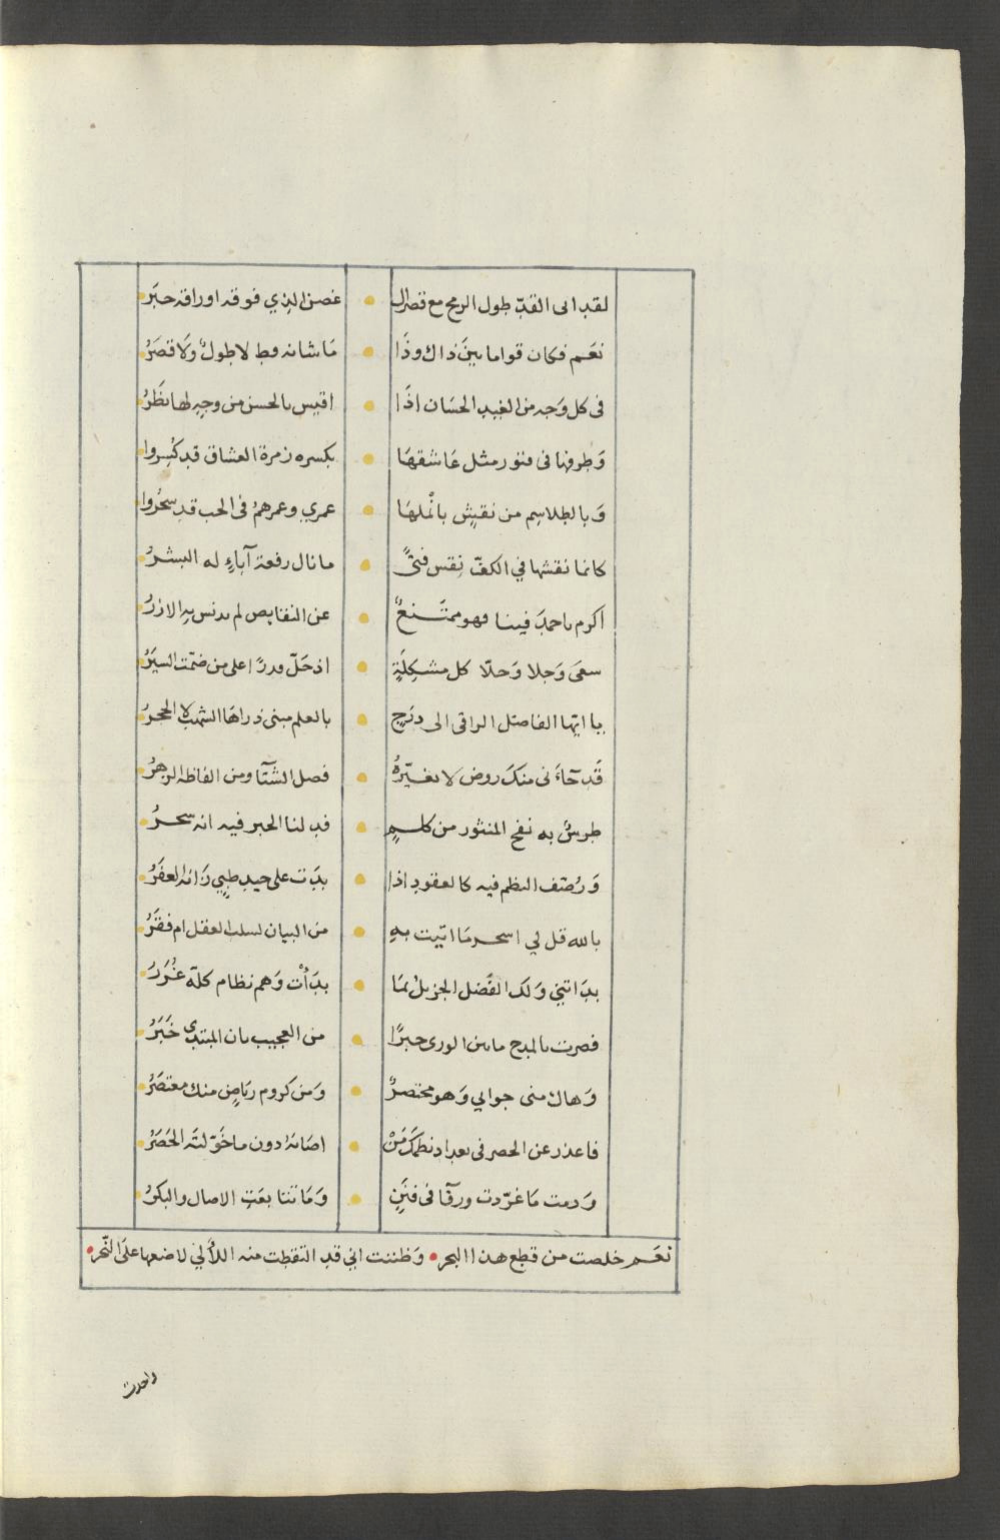 لقد اتى القدّ طول الرمح مع قصر ال غصن الذي فوقه اوراقه حبَرُ
نعَم فكان قواما بينَ ذاك وذَا مَا شانه قط لا طولٌ وَلا قصَرُ
فى كل وَجه من الغيد الحسَان اذَا اقيس بالحسن من وجهٍ لها نظَرُ
وَطرفها فى فتور مثل عَاشقهَا بكسره زمرة العشاق قد كُسِروا
وَبالطلاسِم من نقشٍ بانملهَا عمري وعمرهمُ فى الحب قدِ سحُروا
كانما نقشها في الكفّ نِقس فتىً ما نال رفعة آباءٍ له البشرُ
اكرم باحمدَ فينا فهو ممتَنعٌ عن النقايص لم يدنس به الازرُ
سمَى وَجلا وَحلّا كل مشكلَةٍ اذ حَلّ قدرًا على من ضمّت السيَرُ
يا ايها الفاضل الراقى الى درَجٍ بالعلم مبنى ذراهَا الشهبُ لا الحجرُ
قَد جَآءَنى منكَ روض لا يغيّرهُ فصل الشتَآ ومن الفاظه الزهرُ
طرسٌ به نفح المنثور من كلمٍ قد لنا الحبر فيه انه سحرُ
وَرُصّف النظم فيه كالعقود اذا بدَت على جيد ظبيٍ زَانه العفَرُ
بالله قل لي اسحر مَا اتيت بهِ من البيان لسلب العقل ام فقَرُ
بدَاتني وَلك الفَضل الجزيلُ بمَا بدَأْت وَهم نظام كلّه غُرَرُ
فصرت بالمدح ما بين الورى خبرًا من العجيب بان المبتدى خَبَرُ
وَهاك منى جوابي وَهو مختصرٌ وَمن كروم ريَاضٍ منك معتصَرُ
فاعذر عن الحصر فى تعداد نظمكَ مَنْ اصَابَهُ دون ما خَوّلتَه الحَصَرُ
وَدمت مَا غرّدت ورقآ فى فنَنٍ وَمَا تتابعَتِ الاصال والبكرُ
نعَم خلصت من قطع هذا البحر وَظننت انى قد التقطت منه اللآلي لاضعها علَى النّحر